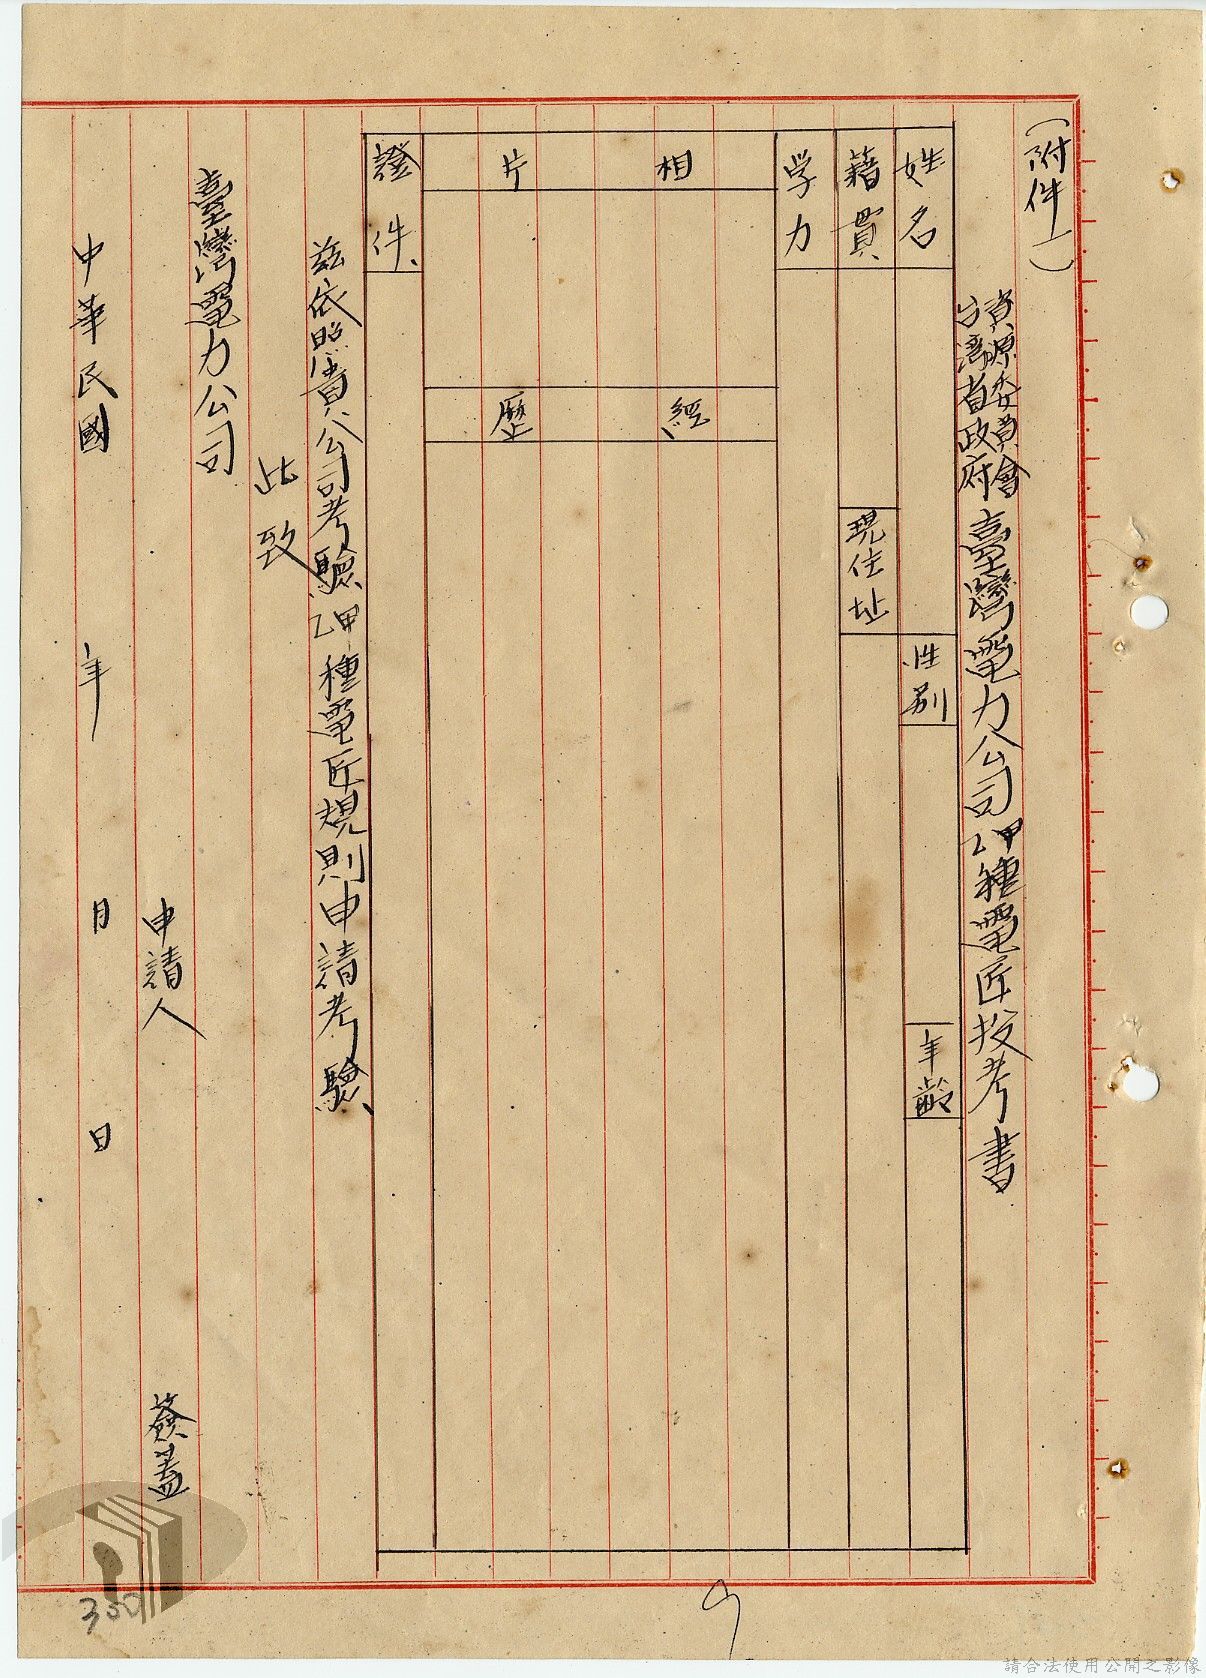 （附件一）
資源委員會
台灣省政府
臺灣電力公司甲乙種電匠投考書
姓名
性別
年齡
籍貫
現住址
学力
相片
經歷
證件
茲依照貴公司考驗甲乙種電匠規則申請考驗
此致
臺灣電力公司
申請人
簽蓋
中華民國 年 月 日
9
350
請合法使用公開之影像